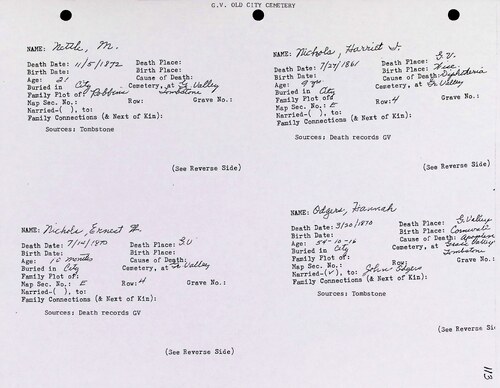 G.V. OLD CITY CEMETERY
NAME: Nettle, M.
Death Date: 11/5/1872 Death Place:
Birth Date: Birth Place:
Age: 21 Cause of Death:
Buried in City Cemetery, at Gr. Valley
Family Plot of: Robbins Tombstone
Map Sec. No.: Row: Grave No.:
Married-( ), to:
Family Connections (& Next of Kin):
Sources: Tombstone
(See Reverse Side)
NAME: Nichols, Harriet J.
Death Date: 7/27/1861 Death Place: G.V.
Birth Date: Birth Place: Wisc
Age: 9 yrs Cause of Death: Diphtheria
Buried in City Cemetery, at Gr. Valley
Family Plot of:
Map Sec. No.: E Row: 4 Grave No.:
Married-( ), to:
Family Connections (& Next of Kin):
Sources: Death records GV
(See Reverse Side)
NAME: Nichols, Ernest
Death Date: 7/14/1870 Death Place: G.V
Birth Date: Birth Place:
Age: 10 months Cause of Death:
Buried in City Cemetery, at Gr. Valley
Family Plot of:
Map Sec. No.: E Row: 4 Grave No.:
Married-( ), to:
Family Connections (& Next of Kin):
Sources: Death records GV
(See Reverse Side)
NAME: Odgers, Hannah
Death Date: 3/20/1870 Death Place: G. Valley
Birth Date: Birth Place: Cornwall
Age: 54-10-16 Cause of Death: Apoplexy
Buried in City Cemetery, at Grass Valley
Family Plot of: Tombstone
Map Sec. No.: Row: Grave No.:
Married-(✓), to: John Odgers
Family Connections (& Next of Kin):
Sources: Tombstone
(See Reverse Si
113